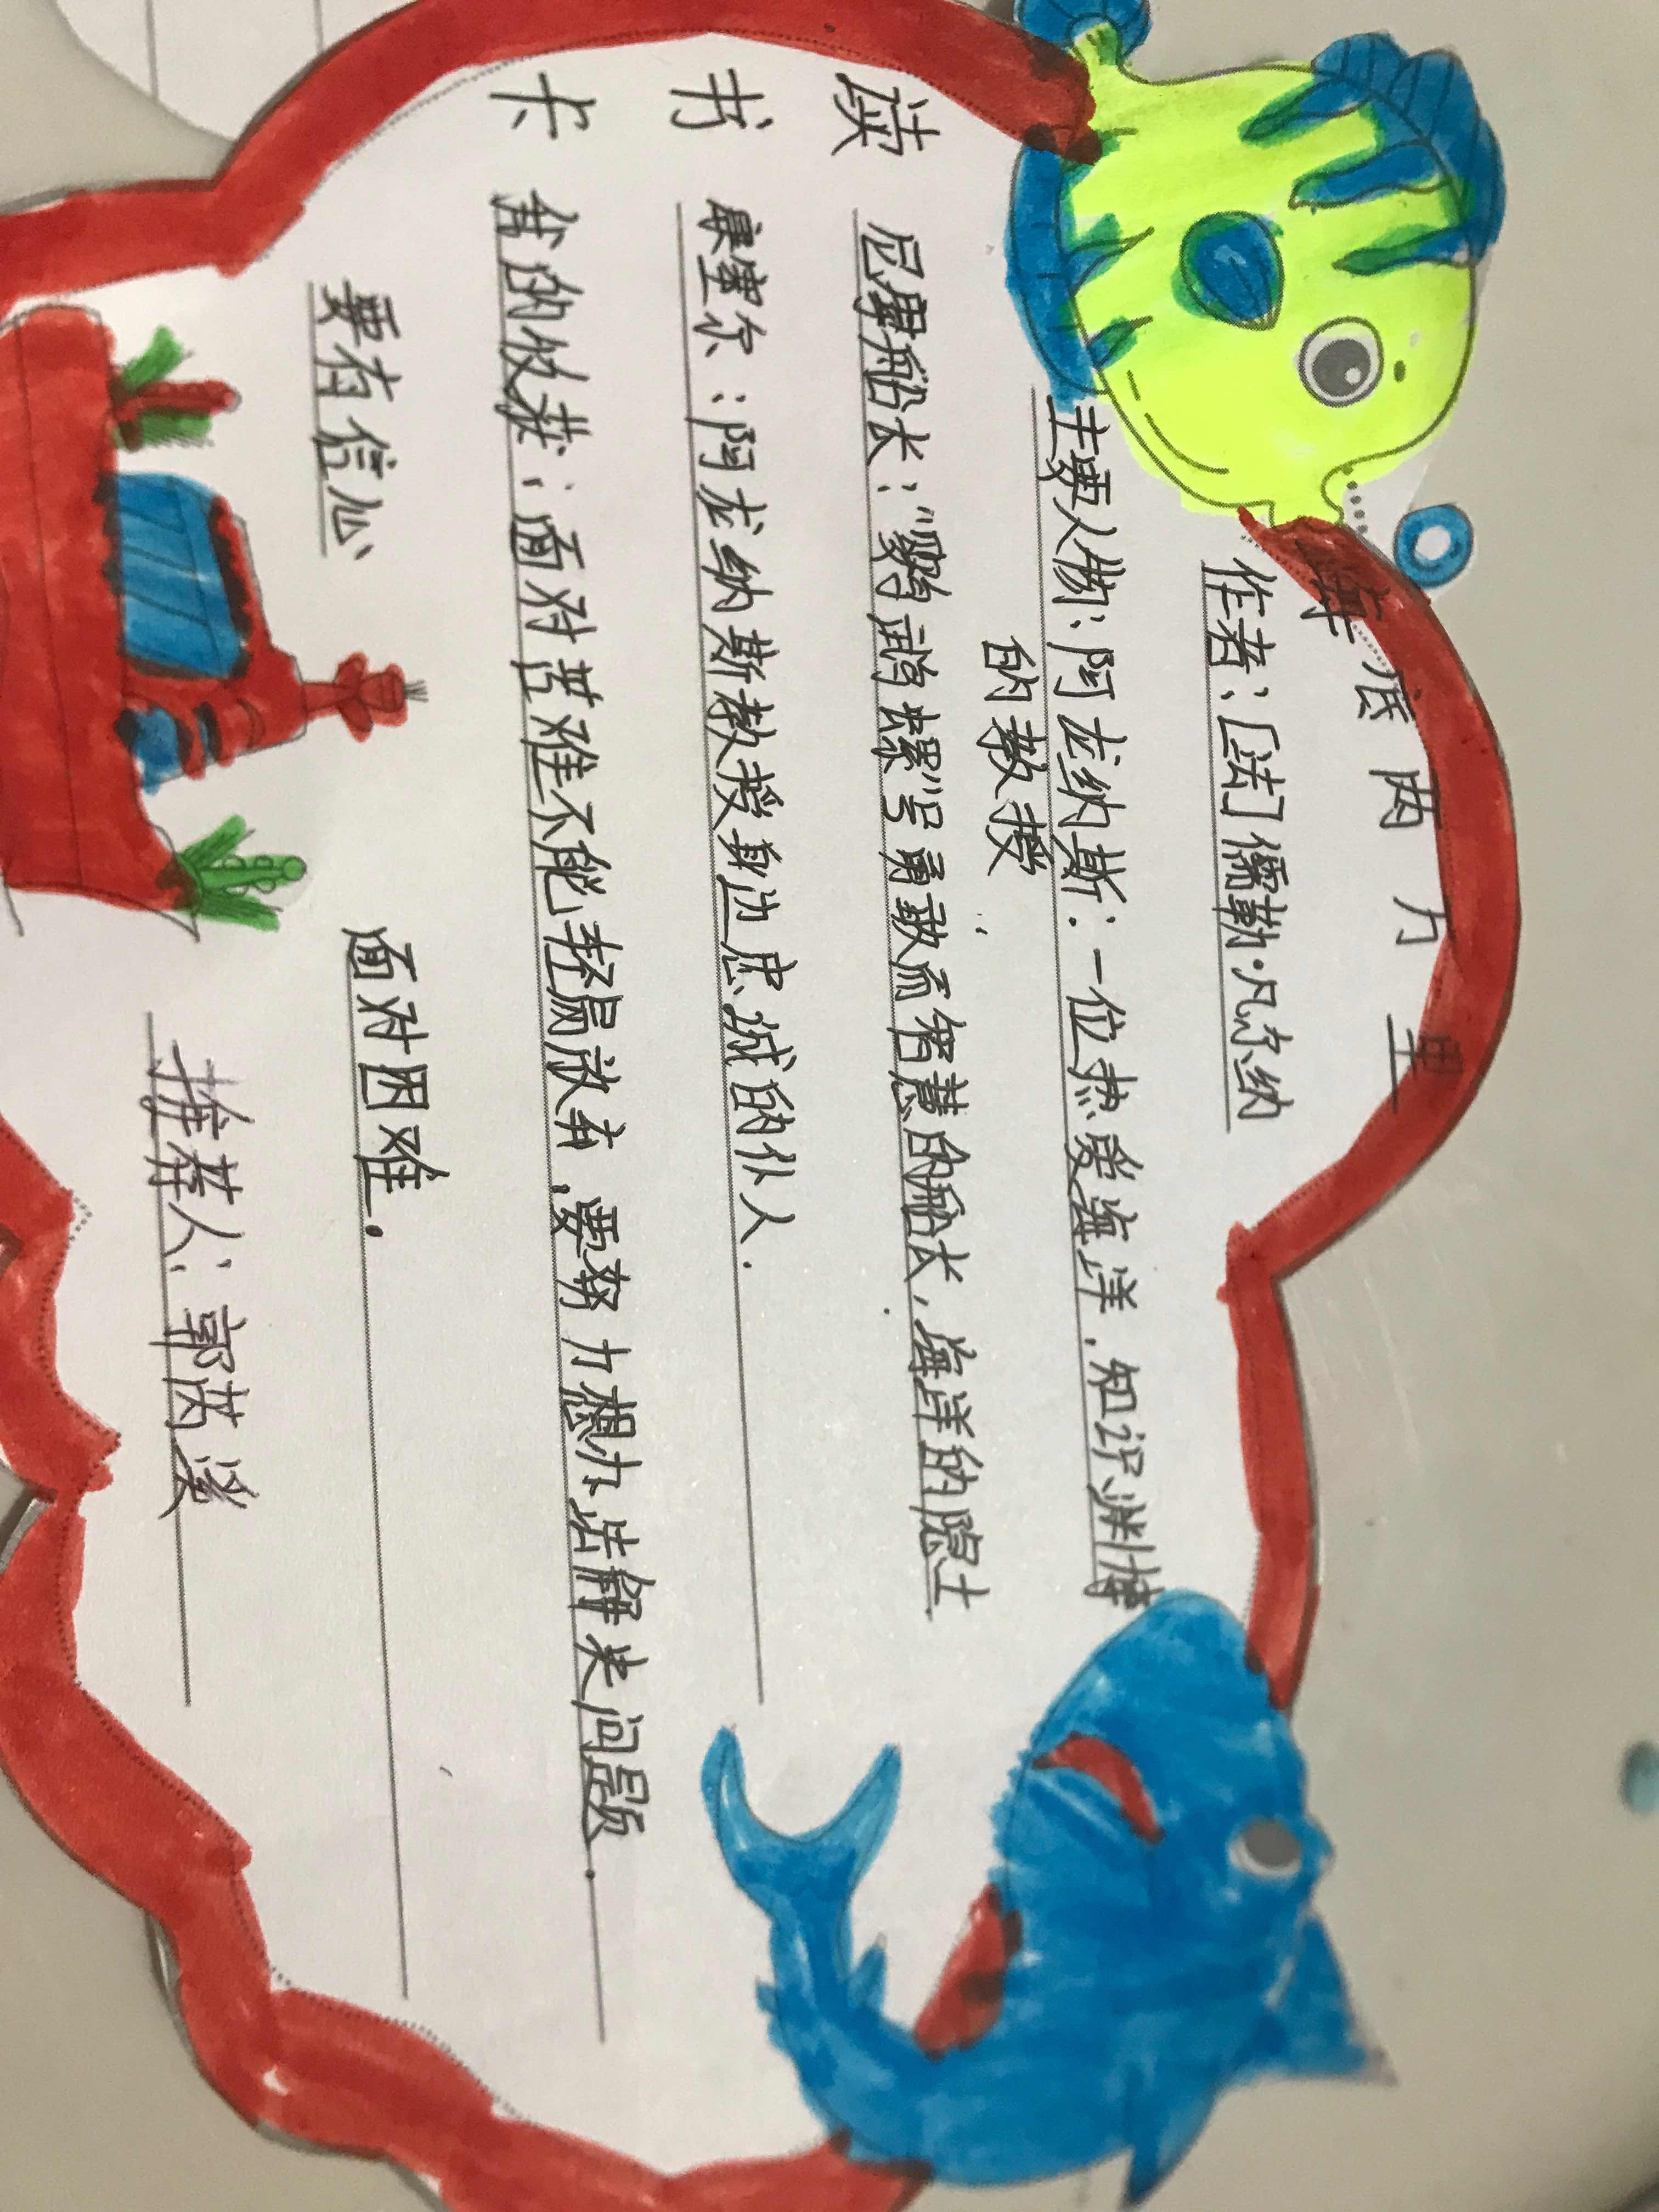 海底两万里
作者：[法]儒勒·凡尔纳
主要人物：阿龙纳斯：一位热爱海洋，知识渊博
的教授
尼摩船长：“鹦鹉螺”号勇敢而智慧的船长，海洋的隐士
康塞尔：阿龙纳斯教授身边忠诚的仆人.
我的收获：面对苦难不能轻易放弃，要努力想办法解决问题.
要有信心 面对困难.
推荐人：郭芮溪
读
书
卡